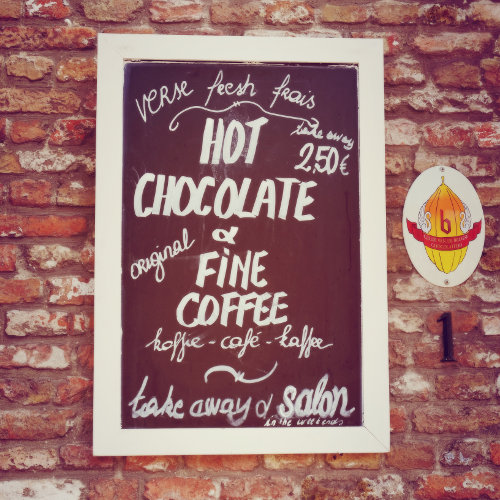 verse fresh frais
take away
HOT
2,50€
CHOCOLATE
&
original
FINE
COFFEE
koffie - café - kaffee
take away & salon
in the weekends
b
1